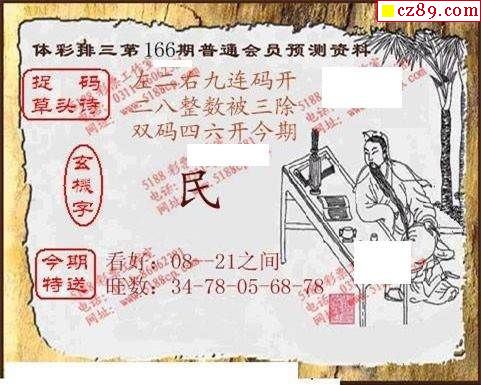 cz89.com
体彩排三第166期普通会员预测资料
捉码
草头诗
左二右九连码开
二八整数被三除
双码四六开今期
玄機字
民
今期
特送
看好：08--21之间
旺数：34-78-05-68-78